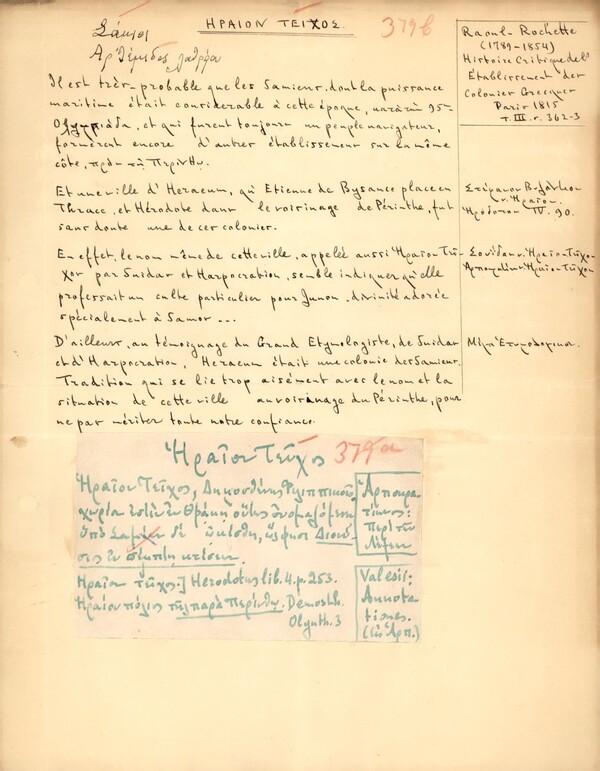 ΗΡΑΙΟΝ ΤΕΙΧΟΣ.
379b
Σάμιοι
Il est très-probable que les Samiens, dont la puissance
maritime était considérable à cette époque, 95ην
Ολυμπιάδα, et qui furent toujours un peuple navigateur,
formèrent encore d'autres établissemens sur la même
côte, πρὸς τῇ Περίνθῳ.
Et une ville d'Heraeum, qu'Etienne de Bysance place en
Thrace, et Hérodote dans le voisinage de Périnthe, fut
sans doute une de ces colonies.
En effet, le nom même de cette ville, appelée aussi Ἡραῖον Τεῖ-
χος par Suidas et Harpocration, semble indiquer qu'elle
professait un culte particulier pour Junon, divinité adorée
spécialement à Samos ...
D'ailleurs, au témoignage du Grand Etymologiste, de Suidas
et d'Harpocration, Heraeum était une colonie des Samiens.
Tradition qui se lie trop aisément avec le nom et la
situation de cette ville au voisinage du Périnthe, pour
ne pas mériter toute notre confiance.
Raoul-Rochette
(1789-1854)
Histoire Critique de l'
Établissement des
Colonies Grecques
Paris 1815
T. III. σ. 362-3
Στέφανον Βυζάντιον
ν. Ἡραῖον.
Ἡρόδοτον IV. 90.
Σουίδαν ν. Ἡραῖον Τεῖχος
Ἁρποκρατίων ν. Ἡραῖον Τεῖχος
Μέγα Ετυμολογικον.
Ἡραῖον Τεῖχος
379a
Ἡραῖον Τεῖχος, Δημοσθένης Φιλιππικοῖς
χωρίον ἐστὶν ἐν Θρᾴκῃ οὕτως ὀνομαζόμενον
ὑπὸ Σαμίων δὲ ᾠκίσθη, ὥς φησι Διονύ-
σιος ἐν πέμπτῃ κτίσεων.
Ἡραῖον τεῖχος] Herodotus lib. 4. p. 253.
Ἡραῖον πόλιος τῆς παρὰ Περίνθῳ. Demosth.
Olynth. 3
Ἁρποκρα-
τίωνος:
Περὶ τῶν
λέξεων
Valesii:
Annota-
tiones.
(εἰς Ἁρπ.)